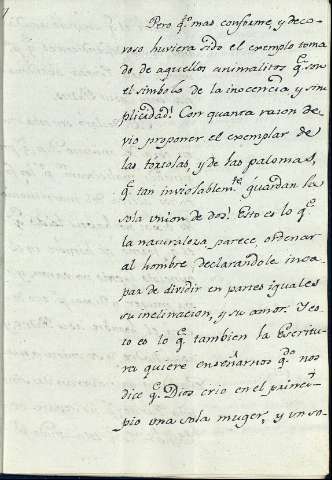 Pero q.to mas conforme, y deco-
roso huviera sido el exemplo toma
do de aquellos animalitos q.e son
el simbolo de la inocencia y sim
plicidad! Con quanta razon de
vio proponer el exemplar de
las tórtolas, y de las palomas,
q.e tan inviolablem.te guardan la
sola union de dos! Esto es lo q.e
la naturaleza parece, ordenar
al hombre declarandole inca
paz de dividir en partes iguales
su inclinacion, y su amor. Y es
to es lo q.e tambien la Escritu
ra quiere enseñarnos q.do nos
dice q.e Dios crio en el princi-
pio una sola muger, y un so-